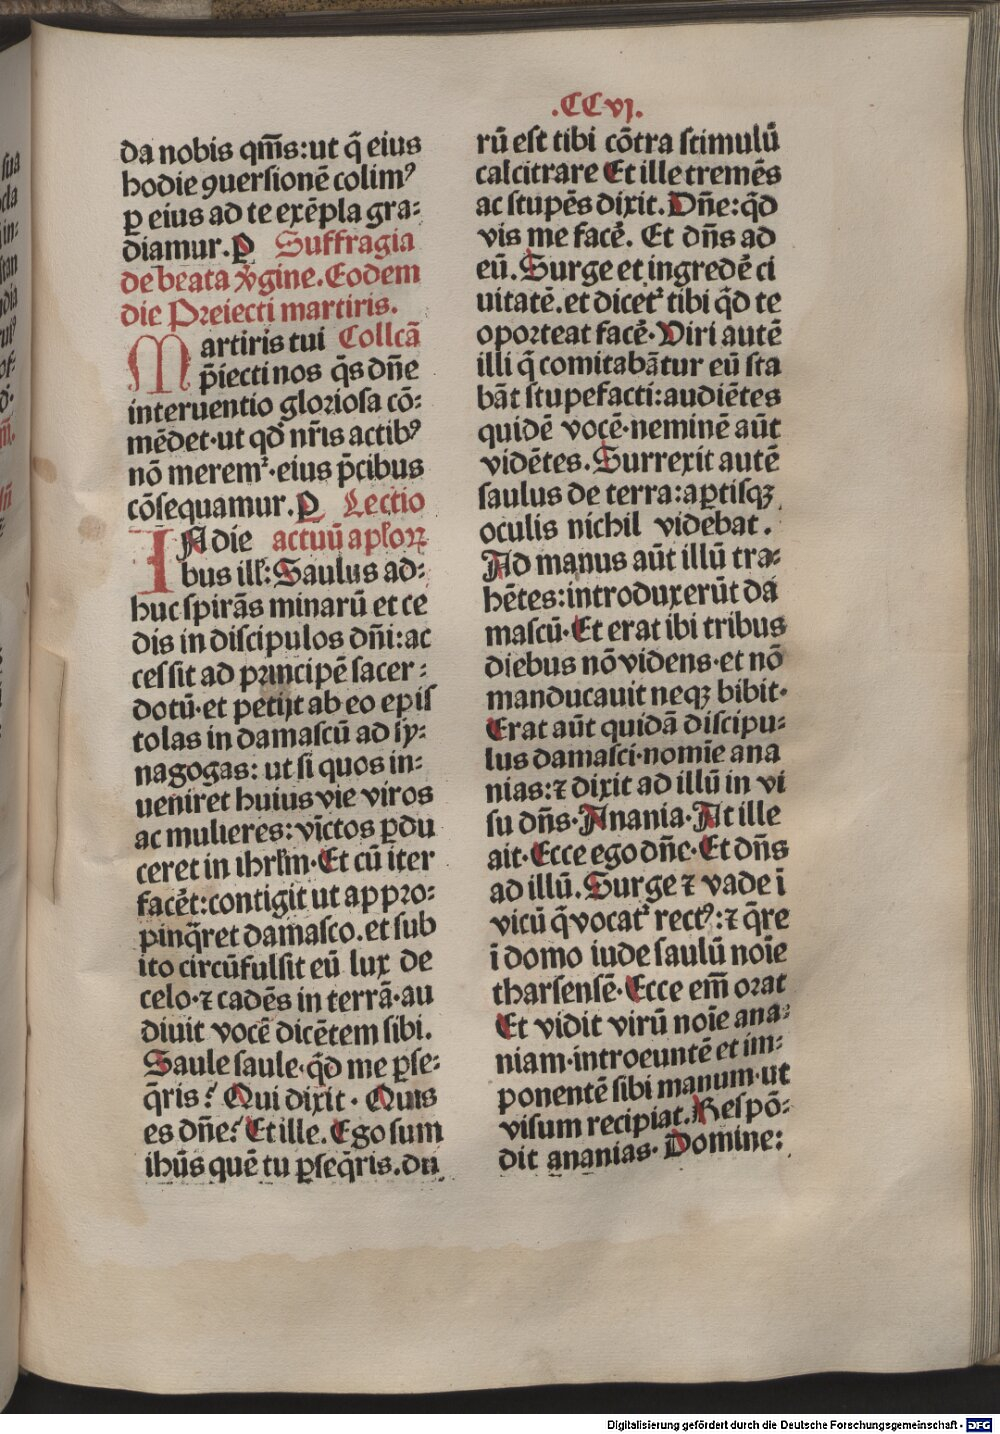 .CCvj.
da nobis qm̄s:ut q̄ eius
hodie ꝯuersionē colimꝰ
ꝑ eius ad te exēpla gra⸗
diamur.ꝑ Suffragia
de beata v̓gine.Eodem
die Preiecti martiris.
Martiris tui Collcā
p̄iecti nos q̄s dn̄e
interuentio gloriosa cō⸗
mēdet·ut qd̓ nr̄is actibꝰ
nō meremꝛ̉·eius p̄cibus
cōsequamur.ꝑ Lectio
IN die actuū apl̓oꝝ
bus ill̓:Saulus ad⸗
huc spirās minarū et ce
dis in discipulos dn̄i:ac
cessit ad principē sacer⸗
dotū·et petijt ab eo epis
tolas in damascū ad sy⸗
nagogas: ut si quos in⸗
ueniret huius vie viros
ac mulieres: vīctos ꝑdu
ceret in ihrl̓m·Et cū iter
facēt:contigit ut appro⸗
pinq̄ret damasco.et sub
ito circūfulsit eū lux de
celo·⁊ cadēs in terrā·au
diuit vocē dicētem sibi.
Saule saule·qd̓ me ꝑse⸗
q̄ris? Qui dixit· Quis
es dn̄e? Et ille. Ego sum
ihūs quē tu ꝑseq̄ris.du
rū est tibi cōtra stimulū
calcitrare Et ille tremēs
ac stupēs dixit. Dn̄e:qd̓
vis me facē̓. Et dn̄s ad
eū. Surge et ingredē̓ ci
uitatē.et dicetꝛ̉ tibi qd̓ te
oporteat facē̓· Viri autē
illi q̄ comitabātur eū sta
bāt stupefacti:audiētes
quidē vocē·neminē aūt
vidētes. Surrexit autē
saulus de terra:aꝑtisqꝫ
oculis nichil videbat.
Ad manus aūt illū tra⸗
hētes:introduxerūt da
mascū·Et erat ibi tribus
diebus nō videns·et nō
manducauit neqꝫ bibit·
Erat aūt quidā discipu⸗
lus damasci·nomīe ana
nias:⁊ dixit ad illū in vi
su dn̄s·Anania·At ille
ait·Ecce ego dn̄e·Et dn̄s
ad illū. Surge ⁊ vade ī
vicū q̄ vocatꝛ̉ rectꝰ:⁊ q̄re
ī domo iude saulū noīe
tharsensē·Ecce em̄ orat
Et vidit virū noīe ana⸗
niam·introeuntē et im⸗
ponentē sibi manum·ut
visum recipiat.Respō⸗
dit ananias· Domine:
Digitalisierung gefördert durch die Deutsche Forschungsgemeinschaft - DFG